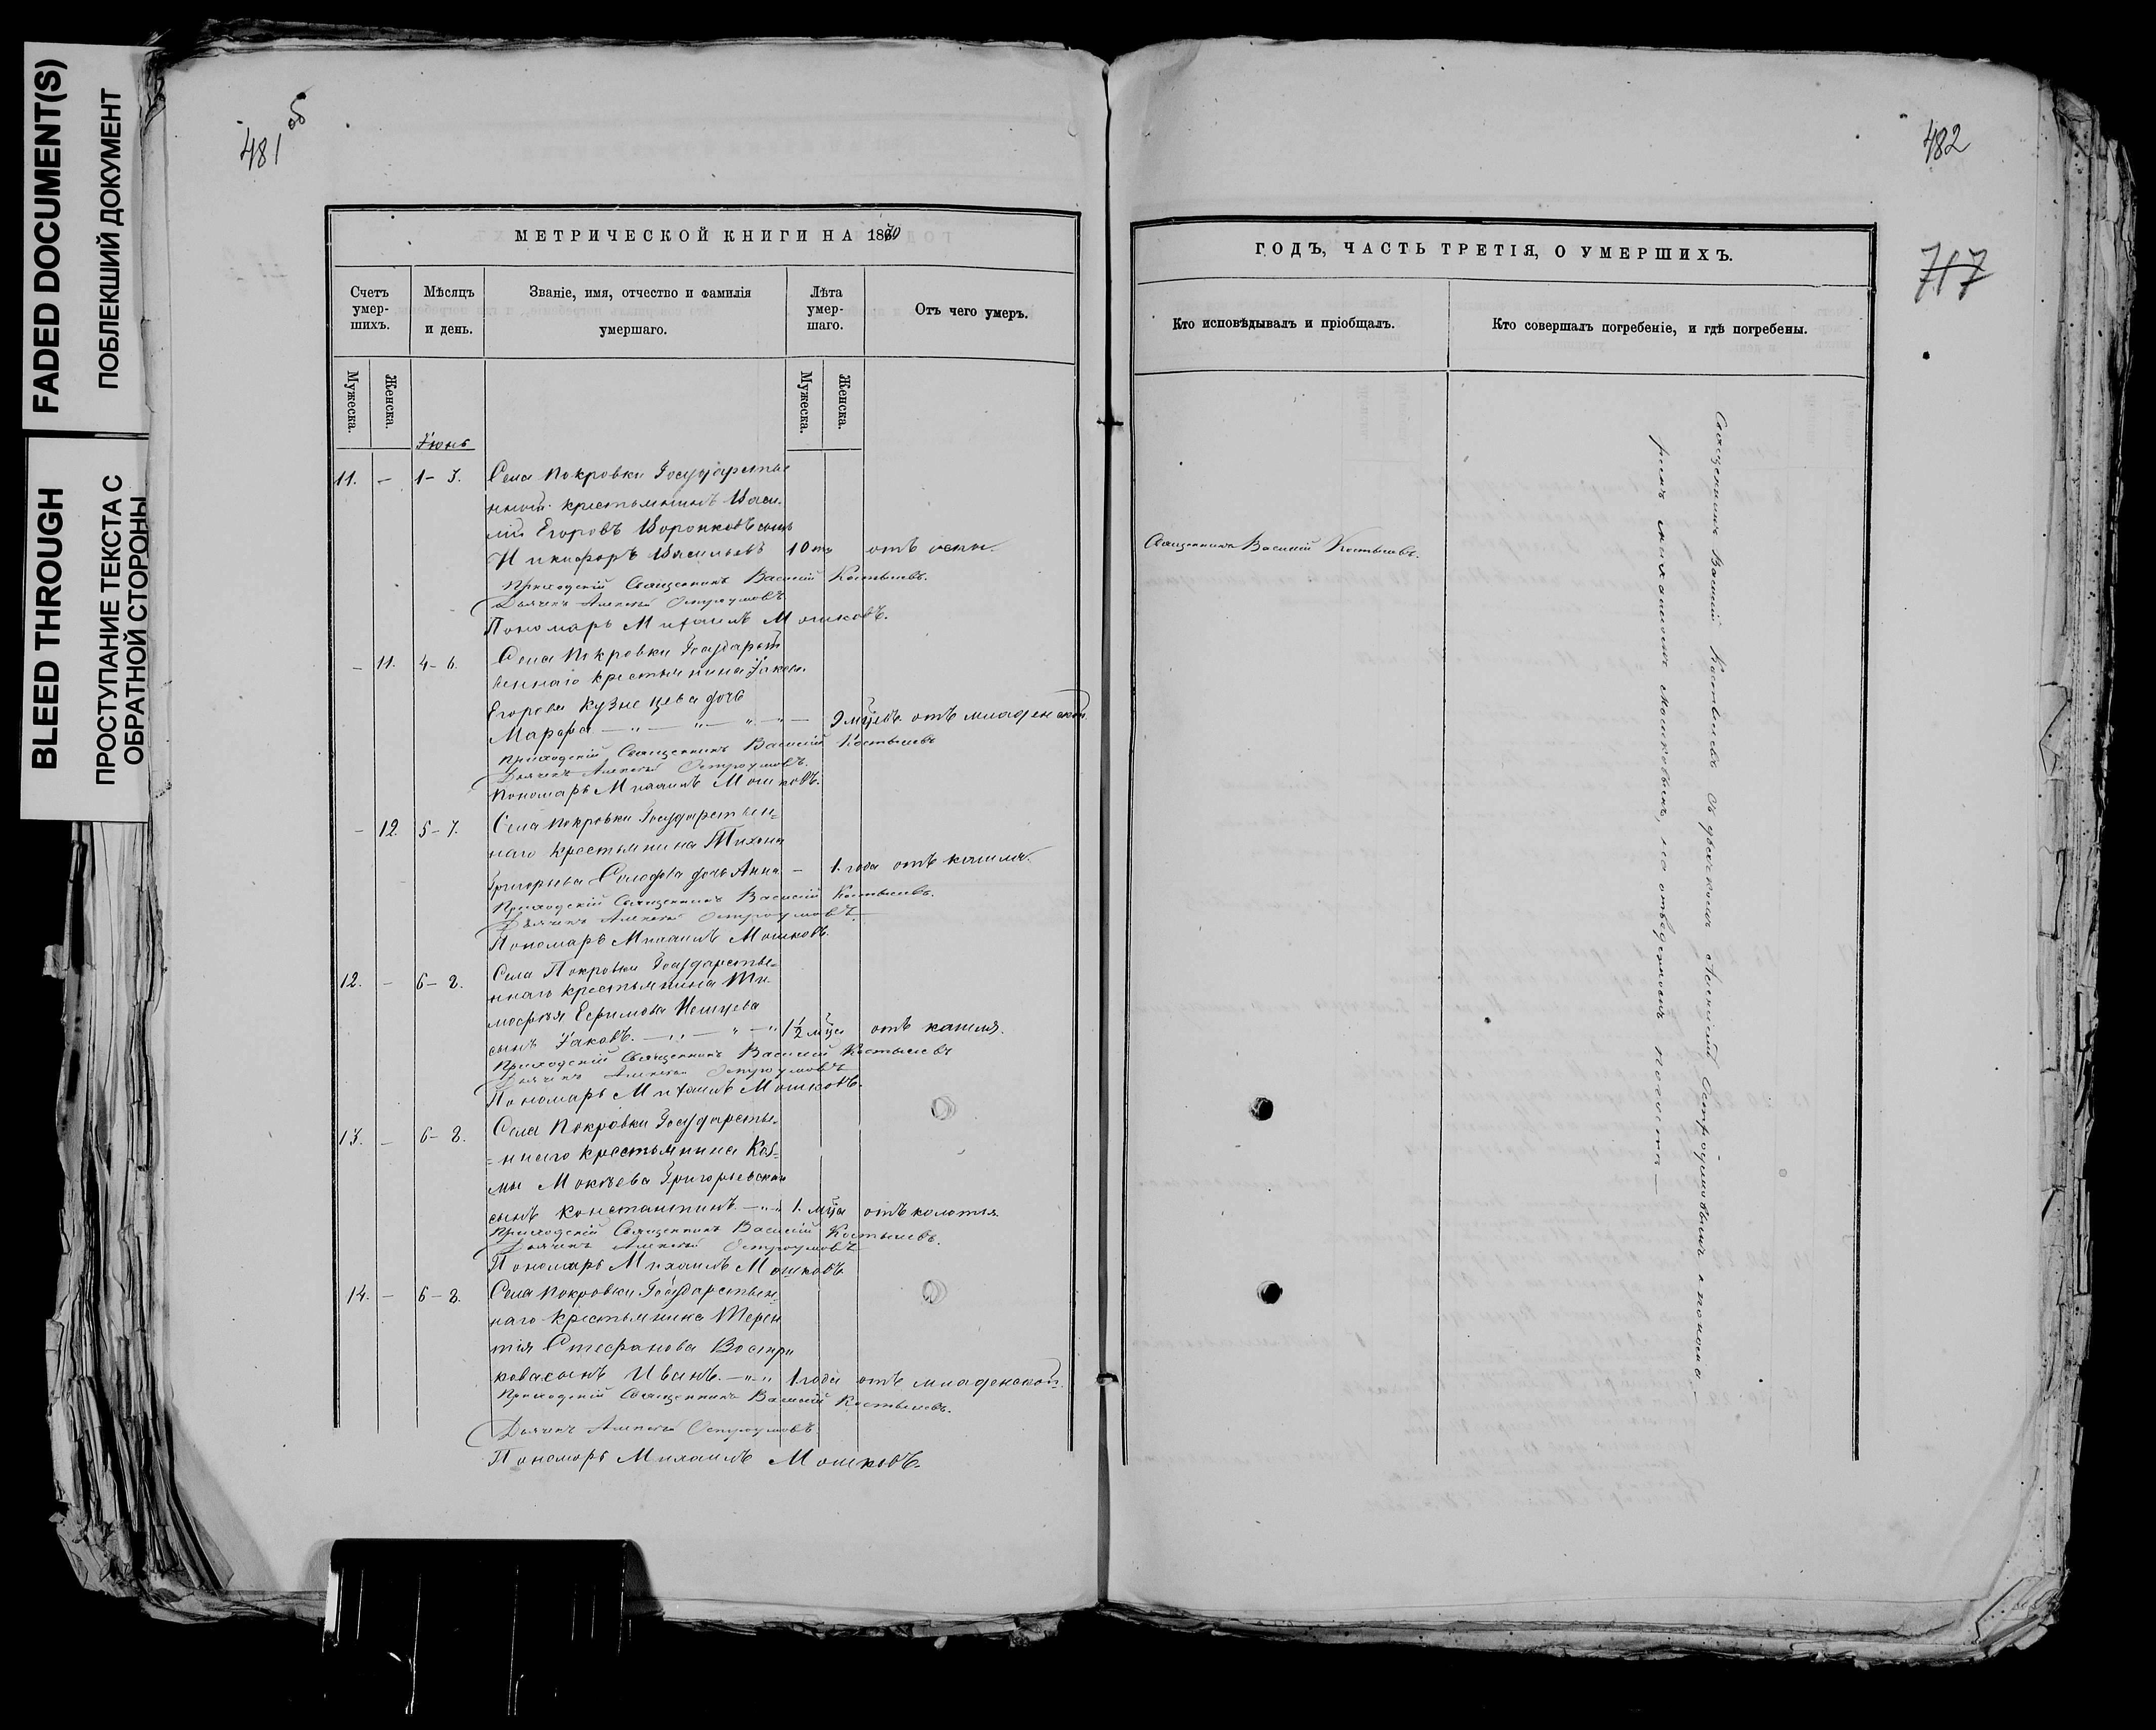 FADED DOCUMENT(S)
ПОБЛЕКШИЙ ДОКУМЕНТ
BLEED THROUGH
ПРОСТУПАНИЕ ТЕКСТА С
ОБРАТНОЙ СТОРОНЫ
481 об
МЕТРИЧЕСКОЙ КНИГИ НА 1870
Счетъ умер-шихъ.
Мѣсяцъ и день.
Званіе, имя, отчество и фамилія умершаго.
Лѣта умер-шаго.
Отъ чего умеръ.
Мужеска.
Женска.
Мужеска.
Женска.
Іюнь
11. – 1–3. Села Покровки Государстве
нный крестьянинъ Васи
лій Егоровъ Воронковъ сынъ
Никифоръ Васильевъ 10 отъ оспы.
Приходскій Священникъ Василій Костылевъ.
Дьячекъ Алексѣй Остроумовъ
Пономарь Михаилъ Мошковъ.
– 11. 4–6. Села Покровки Государст
веннаго крестьянина Іакова
Егорова Кузнецева дочь
Марфа – „ – „ – „ – 9 мцевъ отъ младенской.
Приходскій Священникъ Василій Костылевъ
Дьячекъ Алексѣй Остроумовъ.
Пономарь Михаилъ Мошковъ.
– 12. 5–7. Села Покровки Государствен=
наго крестьянина Тихона
Григорьева дочь Анна – 1. года отъ кашля.
Приходскій Священникъ Василій Костылевъ.
Дьячекъ Алексѣй Остроумовъ.
Пономарь Михаилъ Мошковъ.
12. – 6–8. Села Покровки Государстве=
ннаго крестьянина Ти-
мофея Ефимова
сынъ Іаковъ. – „ – „ – „ 1½ мца отъ кашля.
Приходскій Священникъ Василій Костылевъ
Дьячекъ Алексѣй Остроумовъ
Пономарь Михаилъ Мошковъ.
13. – 6–8. Села Покровки Государстве-
=ннаго крестьянина Коз=
мы Мокѣева Григорьевскаго
сынъ Константинъ. – „ „ 1. мца отъ колотья
Приходскій Священникъ Василій Костылевъ.
Дьячекъ Алексѣй Остроумовъ
Пономарь Михаилъ Мошковъ
14. – 6–8. Села Покровки Государствен
наго крестьянина Терен
тія Стефанова Востри
кова сынъ Иванъ. – „ „ 1 года отъ младенской.
Приходскій Священникъ Василій Костылевъ.
Дьячекъ Алексѣй Остроумовъ.
Пономарь Михаилъ Мошковъ.
482
717
ГОДЪ, ЧАСТЬ ТРЕТІЯ, О УМЕРШИХЪ.
Кто исповѣдывалъ и пріобщалъ.
Кто совершалъ погребеніе, и гдѣ погребены.
Священникъ Василій Костылевъ.
Священникъ Василій Костылевъ съ дьячкомъ Алексѣемъ Остроумовымъ и понома-
ремъ Михаиломъ Мошковымъ, на отведенномъ